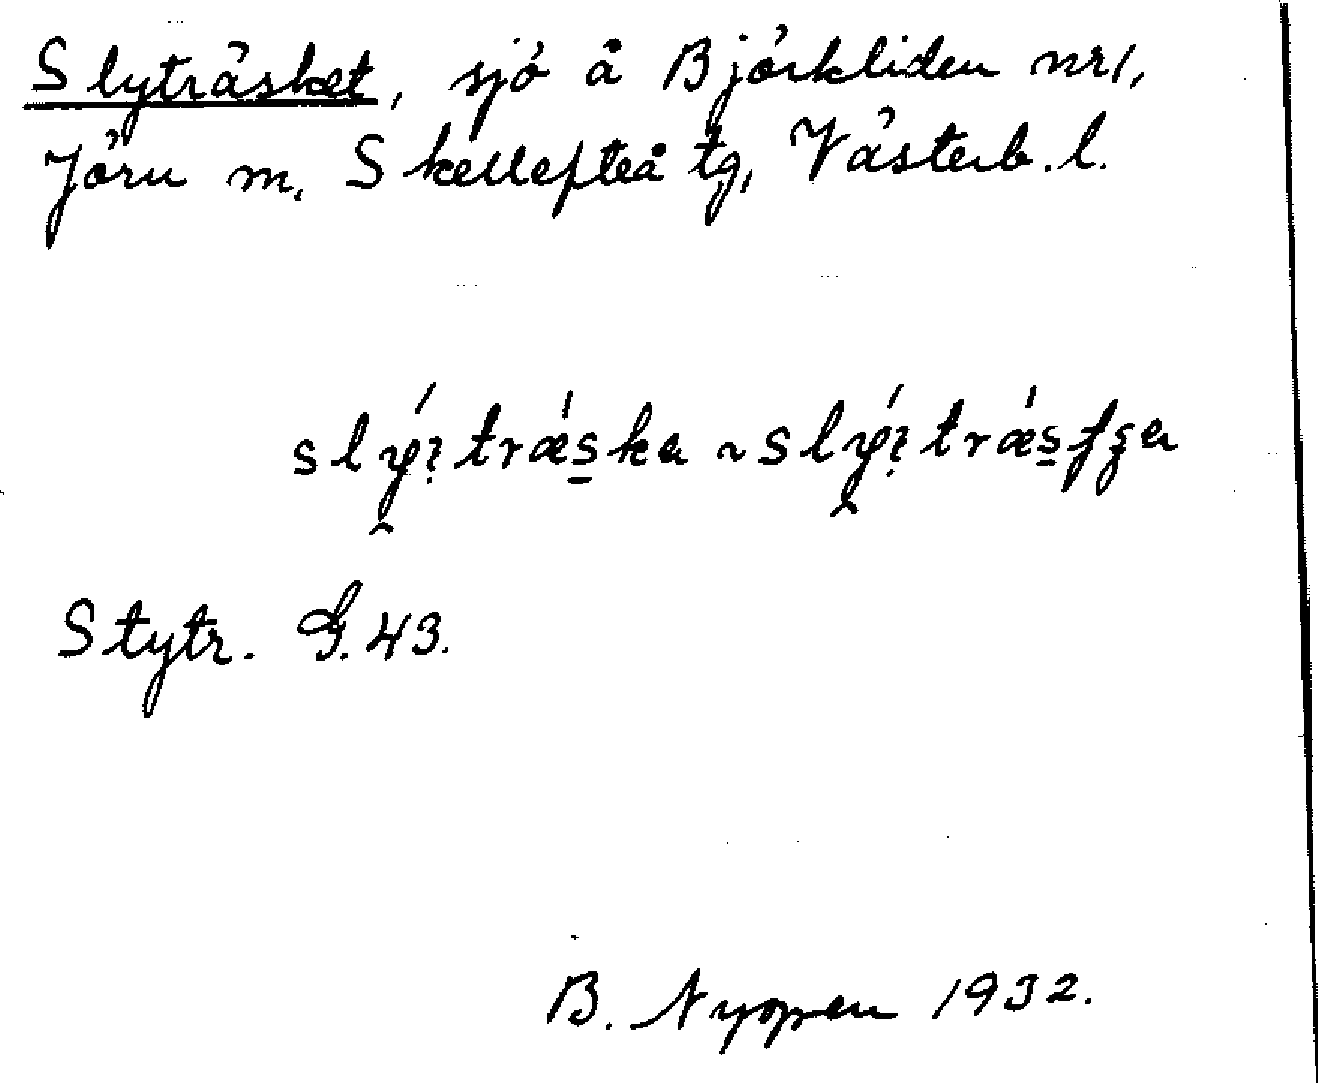 Slyträsket, sjö å Björkliden nr 1,
Jörn m. Skellefteå tg, Västerb. l.
slý̭ꝛtrǽs̱ka ~ slý̭ꝛtrǽs̱ʃʒa
Stytr. G. 43.
B. Nyopen 1932.